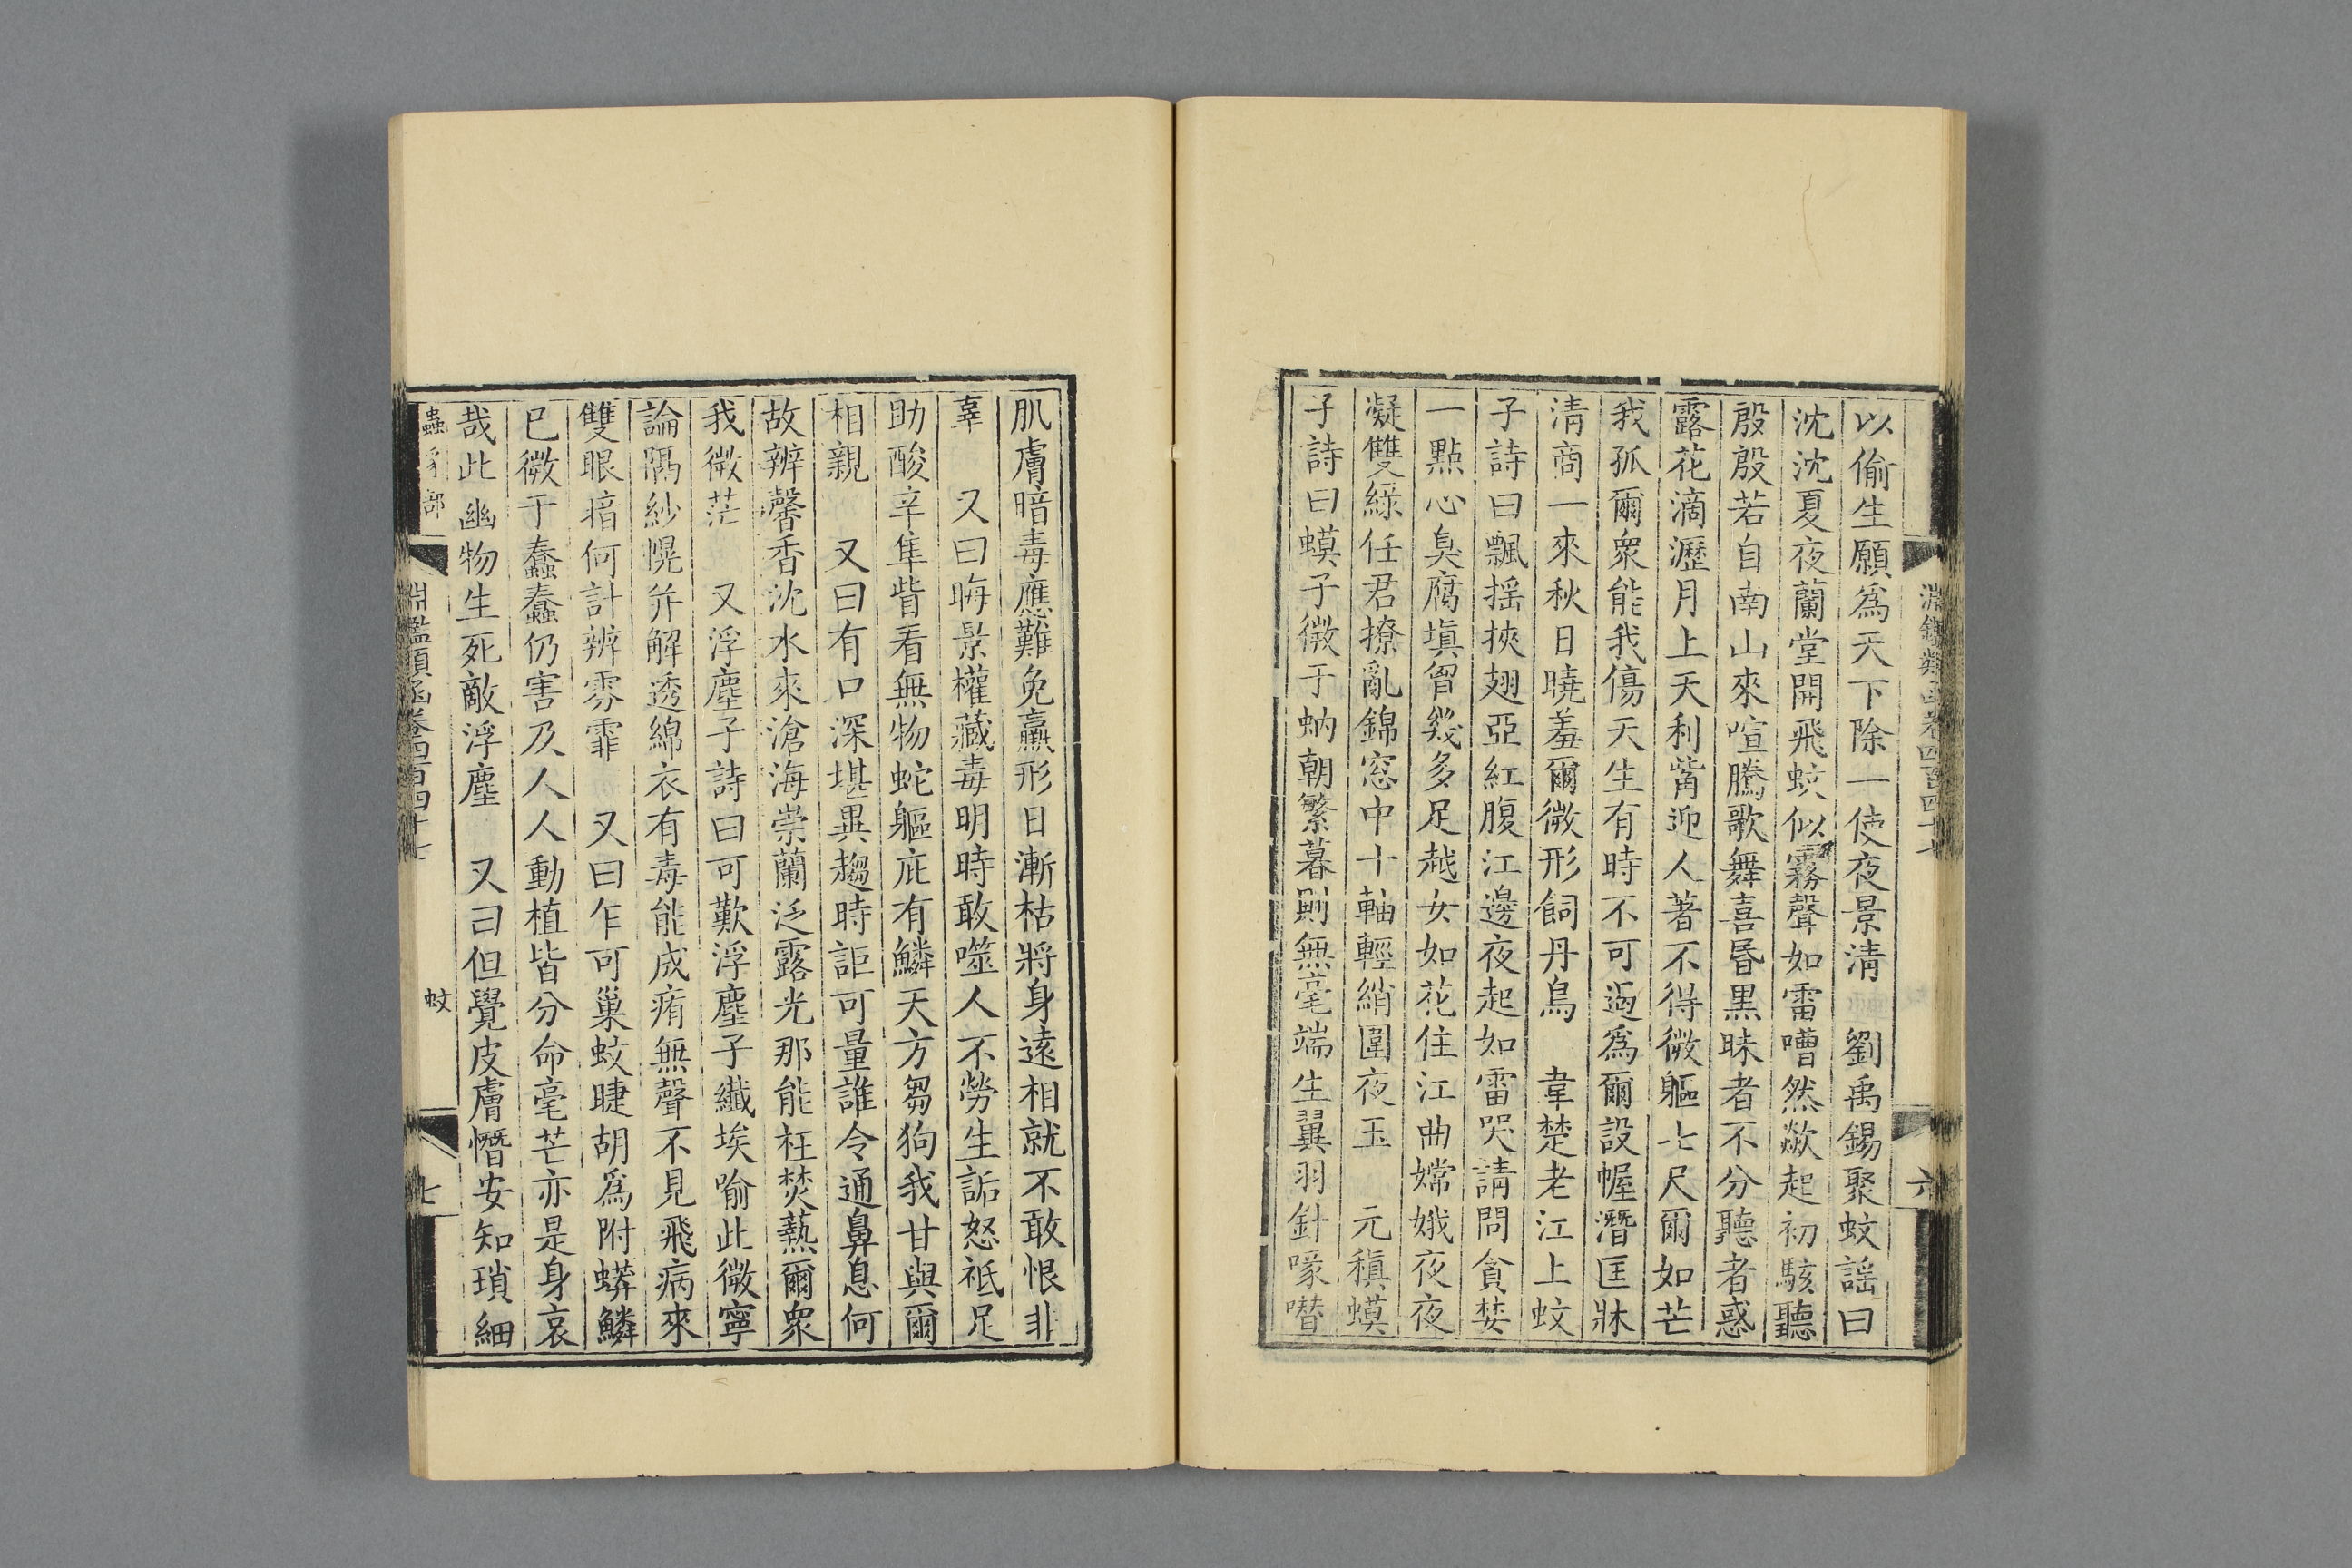 以偷生願爲天下除一使夜景清　劉禹錫聚蚊謡曰
沈沈夏夜蘭堂開飛蚊似霧聲如雷嘈然歘起初駭聽
殷殷若自南山來喧騰歌舞喜昬黒昧者不分聽者惑
露花滴瀝月上天利觜迎人著不得微軀七尺爾如芒
我孤爾衆能我傷天生有時不可遏爲爾設幄潛匡牀
清商一來秋日曉羞爾微形飼丹鳥　韋楚老江上蚊
子詩曰飄摇挾翅亞紅腹江邊夜起如雷哭請問貪婪
一點心臭腐塡胷幾多足越女如花住江曲嫦娥夜夜
凝雙綠任君撩亂錦窓中十軸輕綃圍夜玉　元稹蟆
子詩曰蟆子微于蚋朝繁暮則無毫端生翼羽針喙噆
肌膚暗毒應難免羸形日漸枯將身遠相就不敢恨非
辜　又曰晦景權藏毒明時敢噬人不勞生詬怒祗足
助酸辛隼眥看無物蛇軀庇有鱗天方芻狗我甘與爾
相親　又曰有口深堪異趨時詎可量誰令通鼻息何
故辨馨香沈水來滄海崇蘭泛露光那能枉焚爇爾衆
我微茫　又浮塵子詩曰可歎浮塵子纎埃喻此微寧
論隔紗幌并解透綿衣有毒能成痏無聲不見飛病來
雙眼暗何計辨雰霏　又曰乍可巢蚊睫胡爲附蟒鱗
已微于蠢蠢仍害及人人動植皆分命毫芒亦是身哀
哉此幽物生死敵浮塵　又曰但覺皮膚憯安知瑣細
蟲豸部　淵鑑類函卷四百四十七　蚊　七